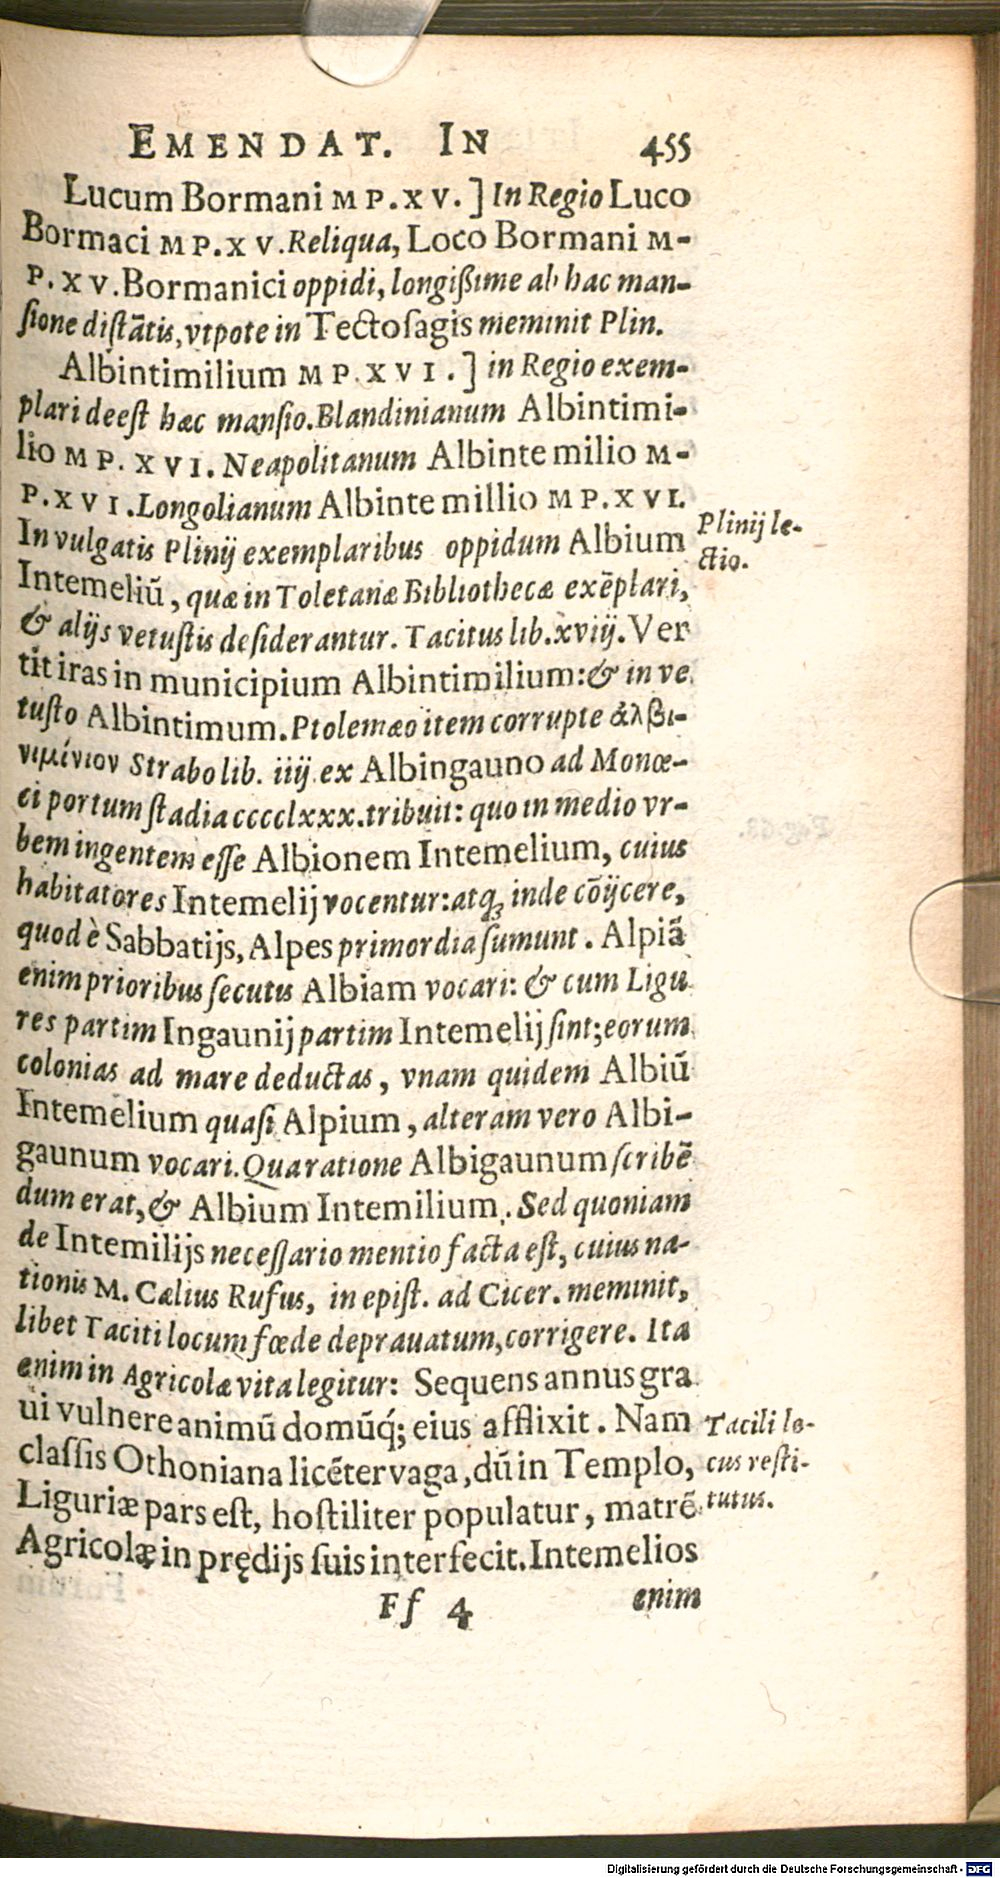 EMENDAT. IN 455
Lucum Bormani MP.XV.] In Regio Luco
Bormaci MP.XV. Reliqua, Loco Bormani M-
P.XV. Bormanici oppidi, longißime ab hac man-
sione distātis, vtpote in Tectosagis meminit Plin.
Albintimilium MP.XVI.] in Regio exem-
plari deest hæc mansio. Blandinianum Albintimi-
lio MP.XVI. Neapolitanum Albinte milio M-
P.XVI. Longolianum Albinte millio MP.XVI.
In vulgatis Plinij exemplaribus oppidum Albium
Plinij le-
ctio.
Intemeliū, quæ in Toletanæ Bibliothecæ exēplari,
& alijs vetustis desiderantur. Tacitus lib. xviij. Ver
tit iras in municipium Albintimilium: & in ve
tusto Albintimum. Ptolemæo item corrupte ἀλβι-
νιμίνιον Strabo lib. iiij. ex Albingauno ad Monœ-
ci portum stadia cccclxxx. tribuit: quo in medio vr-
bem ingentem esse Albionem Intemelium, cuius
habitatores Intemelij vocentur: atq; inde cōijcere,
quod è Sabbatijs, Alpes primordia sumunt. Alpiā
enim prioribus secutis Albiam vocari: & cum Ligu
res partim Ingaunij partim Intemelij sint; eorum
colonias ad mare deductas, vnam quidem Albiū
Intemelium quasi Alpium, alteram vero Albi-
gaunum vocari. Qua ratione Albigaunum scribē
dum erat, & Albium Intemilium. Sed quoniam
de Intemilijs necessario mentio facta est, cuius na-
tionis M. Cælius Rufus, in epist. ad Cicer. meminit,
libet Taciti locum fœde deprauatum, corrigere. Ita
enim in Agricolæ vita legitur: Sequens annus gra
ui vulnere animū domūq́; eius afflixit. Nam
classis Othoniana licēter vaga, dū in Templo,
Liguriæ pars est, hostiliter populatur, matrē
Tacili lo-
cus resti-
tutus.
Agricolæ in prędijs suis interfecit. Intemelios
Ff 4 enim
Digitalisierung gefördert durch die Deutsche Forschungsgemeinschaft - DFG